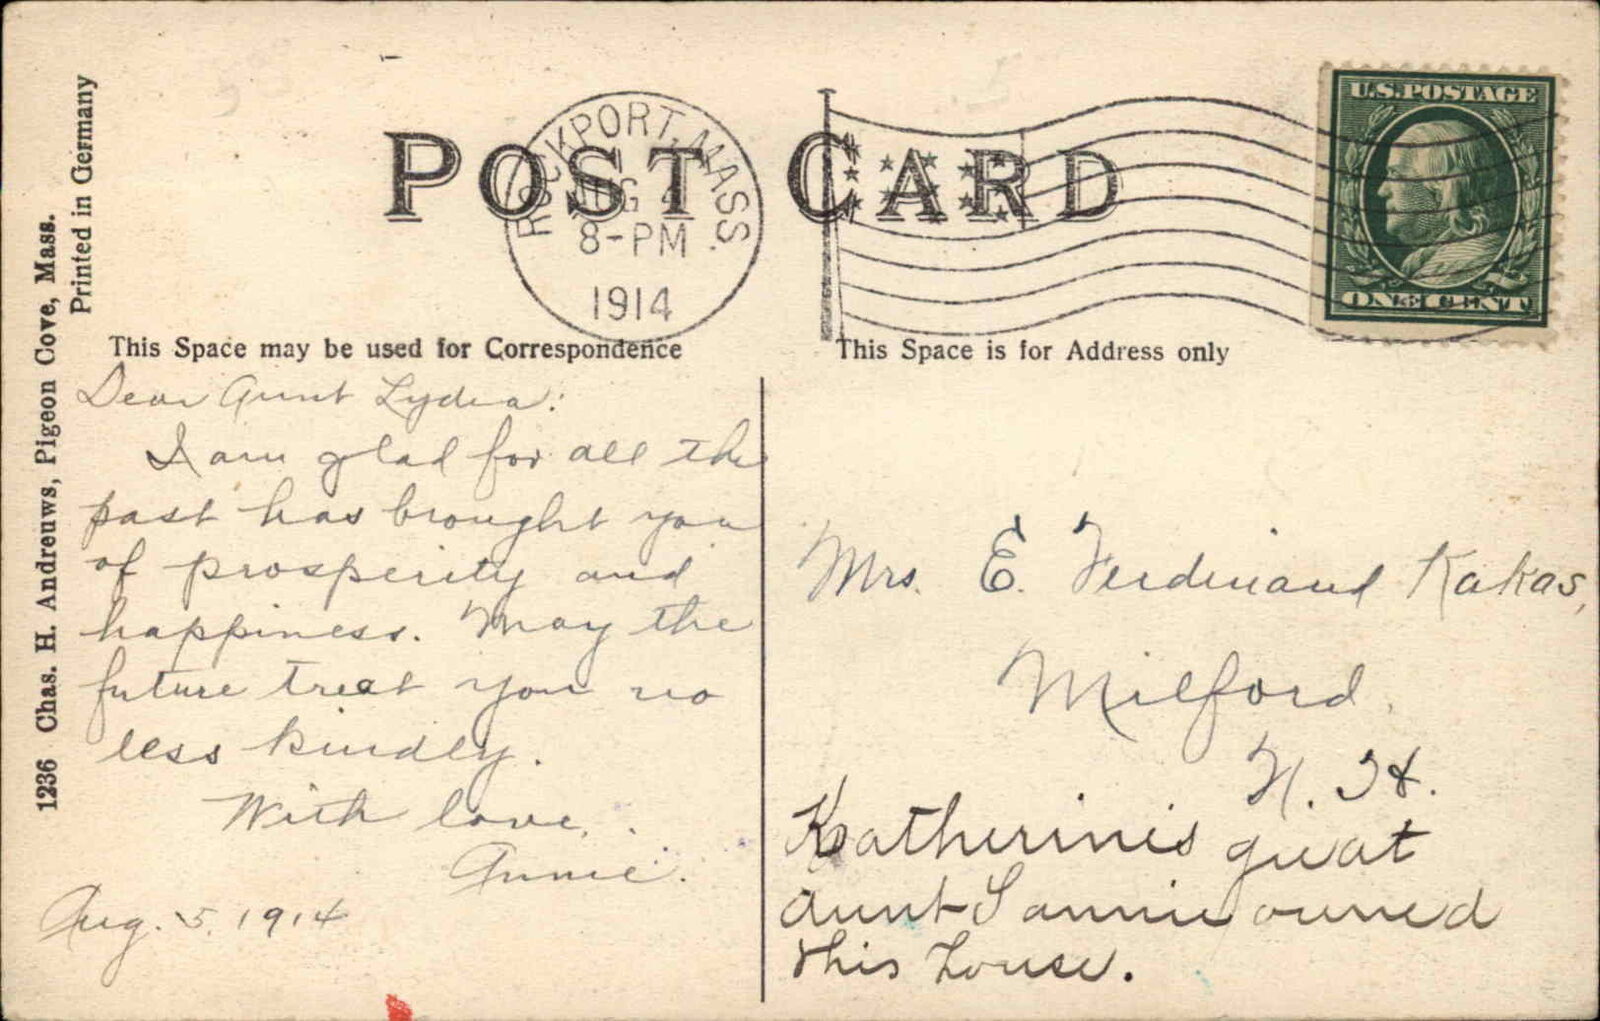 POST CARD
ROCKPORT, MASS.
AUG 4
8-PM
1914
U.S. POSTAGE
ONE CENT
This Space may be used for Correspondence
This Space is for Address only
1236 Chas. H. Andreuws, Pigeon Cove, Mass.
Printed in Germany
Dear Aunt Lydia:
I am glad for all the
past has brought you
of prosperity and
happiness. May the
future treat you no
less kindly.
With love,
Annie.
Aug. 5, 1914
Mrs. E. Ferdinand Kakas,
Milford,
N. H.
Katherine's great
aunt Fannie owned
this house.